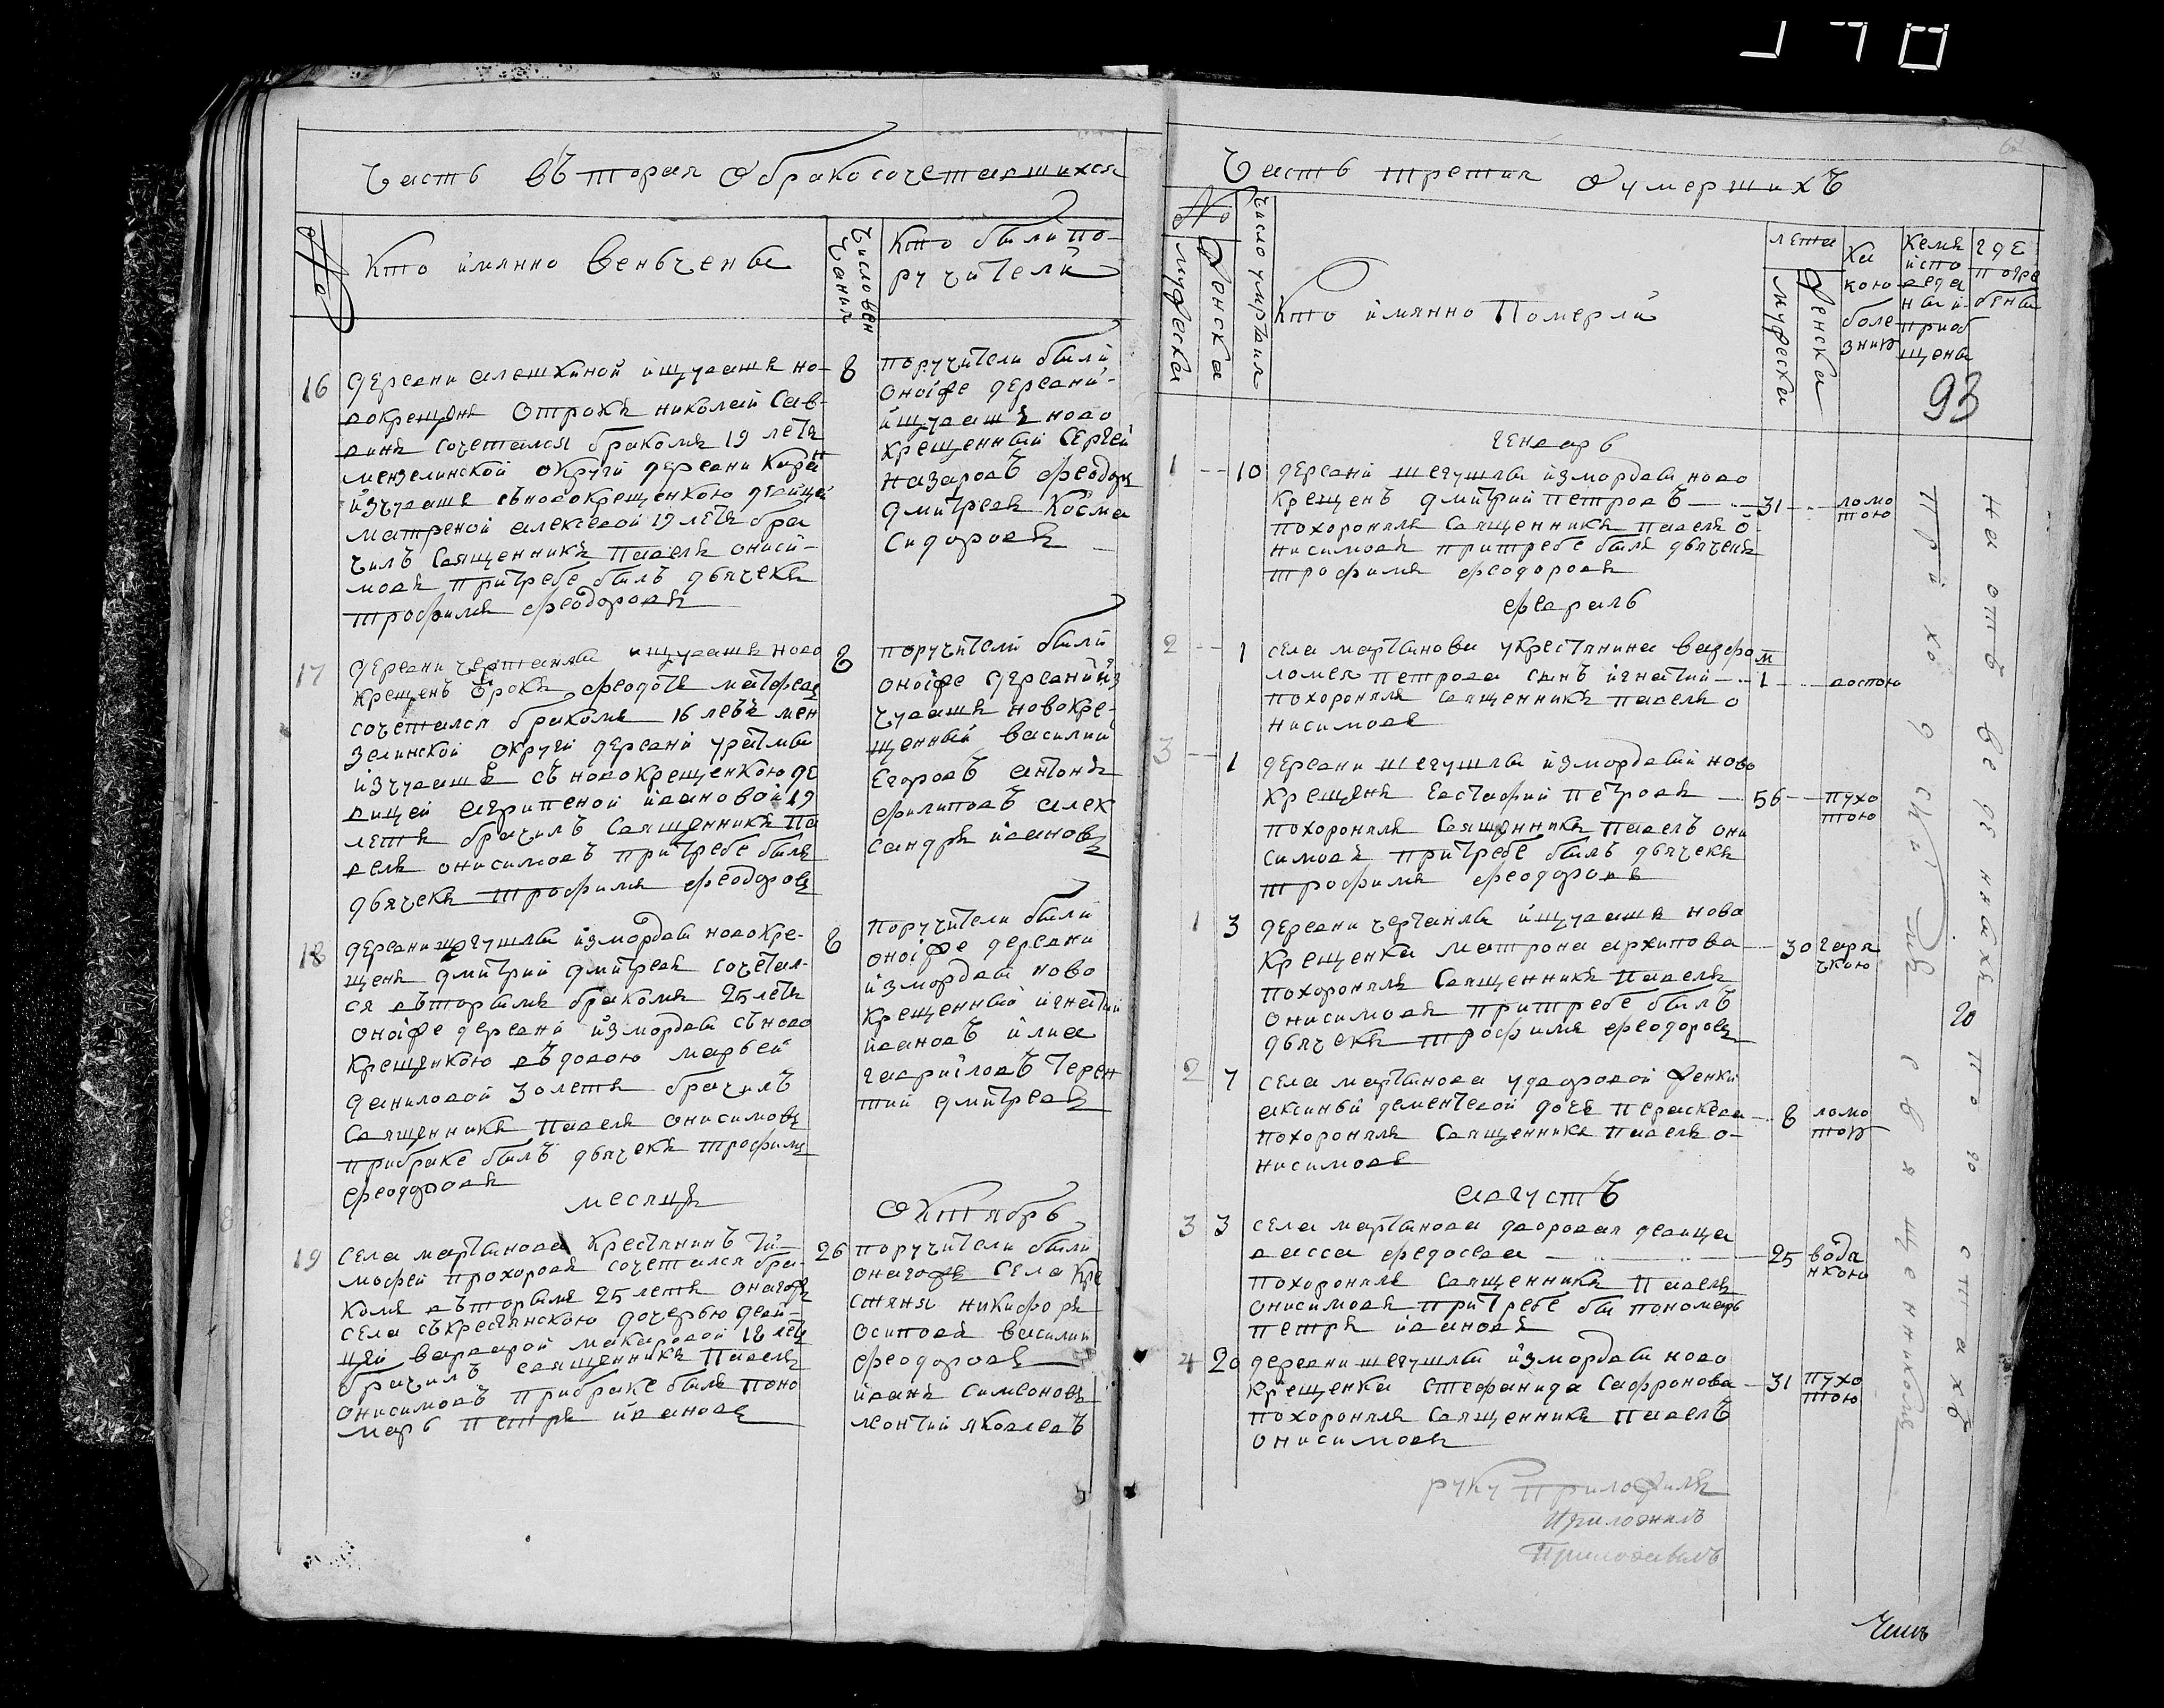 Часть въторая о бракосочетавшихся
№
Кто имянно веньчены
Число вен
чания
Кто были по-
ручители
16
деревни алешкиной ищувашъ но-
вокрещенъ отрокъ николай Сав-
винъ сочетался бракомъ 19 летъ
мензелинской округи деревни
изчувашъ съновокрещенкою девицей
матреной алексеевой 19 летъ бра
чилъ Священникъ Павелъ ониси-
мовъ притребе былъ дьячекъ
трофимъ феодоровъ
8
поручители были
оноїже деревни
ищувашъ ново
крещенный Сергей
Назаровъ феодоръ
Дмитревъ Косма
Сидоровъ
17
деревни чертанлы ищувашъ ново
крещенъ феодотъ матфеевъ
сочетался бракомъ 16 летъ мен
зелинской округи деревни
изчувашъ съновокрещенкою де
вицей агрипеной ивановой 19
летъ брачилъ Священникъ Па
велъ онисимовъ притребе былъ
дьячекъ трофимъ феодоровъ
8
поручители были
оноїже деревни из
чувашъ новокре-
щенный василий
Егоровъ антонъ
филиповъ алек
сандръ ивановъ
18
деревни шегушлы измордвы новокре-
щенъ дмитрий дмитревъ сочетал-
ся въторымъ бракомъ 25 летъ
оноїже деревни измордвы съново
крещенкою въдовою марьей
даниловой 30 летъ брачилъ
Священникъ Павелъ онисимовъ
прибраке былъ дьячекъ трофимъ
феодоровъ
8
поручители были
оноїже деревни
измордвы ново
крещенный игнатий
ивановъ илиа
гавриловъ Терен
тий дмитревъ
месяцъ
Октябрь
19
Села мартынова Крестянинъ Ти-
мофей прохоровъ сочетался бра-
комъ въторымъ 25 летъ оногожъ
села съкрестянскою дочерью деви-
цей варварой макаровой 18 летъ
брачилъ священникъ Павелъ
онисимовъ прибраке былъ поно
марь петръ ивановъ
26
поручители были
оногожъ Села Кре
стяня никифоръ
осиповъ василий
феодоровъ
иванъ симеоновъ
леонтий яковлевъ
Часть третия о умершихъ
№
мужеска
женска
Число умртвия
Кто имянно Померли
лета
мужеска
женска
Ка
кою
боле
знию
Кемъ
испо
веда
ны и
приоб
щены
где
погре
бены
93
генварь
1 10
деревни шегушлы измордвы ново
крещенъ дмитрий петровъ 31 ломо
тою
похоронялъ Священникъ павелъ о-
нисимовъ притребе былъ дьячекъ
трофимъ феодоровъ
февраль
2 1
села мартынова укрестянина варфо
ломея петрова сынъ игнатий м 1 воспою
похоронялъ Священникъ павелъ о
нисимовъ
3 1
деревни шегушлы измордвы ново
крещенъ Евстафий Петровъ 56 пухо
тою
похоронялъ Священникъ павелъ они
симовъ притребе былъ дьячекъ
трофимъ феодоровъ
1 3
деревни чертанлы ищувашъ нова
крещенка матрона архипова 30 горя
чкою
похоронялъ Священникъ Павелъ
онисимовъ притребе былъ
дьячекъ трофимъ феодоровъ
2 7
села мартынова удворовой женки
аксиньи дементевой дочь параскева 8 ломо
тою
похоронялъ Священникъ павелъ о-
нисимовъ
августъ
3 3
села мартынова дворовая девица
васса федосева 25 водя
нкою
похоронялъ священникъ Павелъ
онисимовъ притребе бы пономарь
петръ ивановъ
4 20
деревни шегушлы измордвы ново
крещенка Стефанида Сафронова 31 пухо
тою
похоронялъ Священникъ павелъ
онисимовъ
руку приложилъ
Приложилъ
приходскимъ священникомъ
на отведенныхъ по